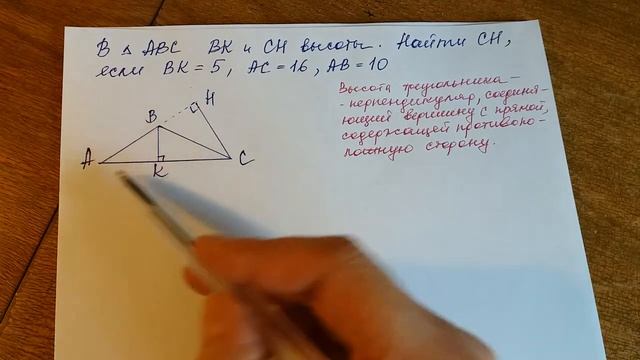 В △ ABC BK и CH высоты. Найти CH,
если BK = 5, AC = 16, AB = 10
Высота треугольника –
- перпендикуляр, соединя-
ющий вершину с прямой,
содержащей противопо-
ложную сторону.
H
B
A
K
C